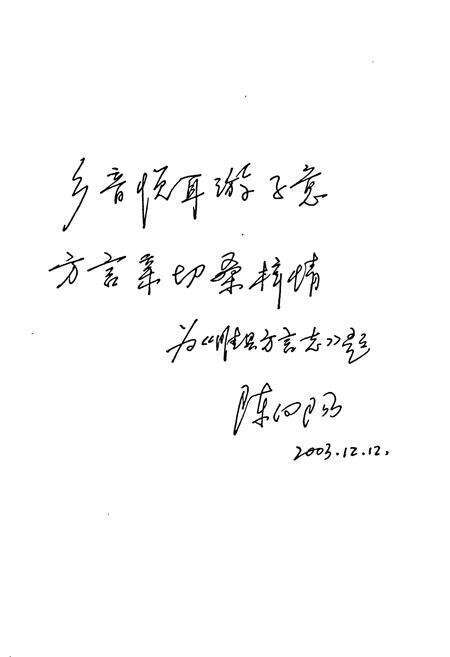 乡音悦耳游子意
方言亲切桑梓情
为《睢县方言志》题
陈向阳
2003.12.12.